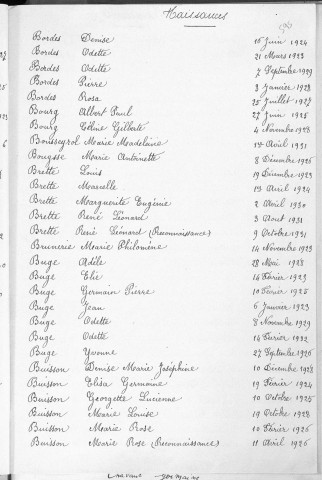 Naissances
Bordes Denise 15 Juin 1924
Bordes Odette 21 Mars 1923
Bordes Odette 7 Septembre 1929
Bordes Pierre 3 Janvier 1928
Bordes Rosa 25 Juillet 1927
Bourg Albert Paul 27 Juin 1925
Bourg Céline Gilberte 4 Novembre 1928
Bouseyrol Marie Madeleine 14 Avril 1931
Bouysse Marie Antoinette 8 Décembre 1925
Brette Louis 19 Décembre 1923
Brette Marcelle 13 Avril 1924
Brette Marguerite Eugénie 2 Avril 1930
Brette René Léonard 3 Août 1931
Brette René Léonard (Reconnaissance) 9 Octobre 1931
Brunerie Marie Philomène 14 Novembre 1923
Buge Adèle 28 Mai 1928
Buge Elie 14 Février 1923
Buge Germain Pierre 10 Février 1925
Buge Jean 6 Janvier 1923
Buge Odette 8 Novembre 1929
Buge Odette 14 Février 1932
Buge Yvonne 27 Septembre 1926
Buisson Denise Marie Joséphine 10 Décembre 1928
Buisson Elisa Germaine 19 Février 1924
Buisson Georgette Lucienne 10 Octobre 1925
Buisson Marie Louise 19 Octobre 1928
Buisson Marie Rose 10 Février 1926
Buisson Marie Rose (Reconnaissance) 11 Avril 1926